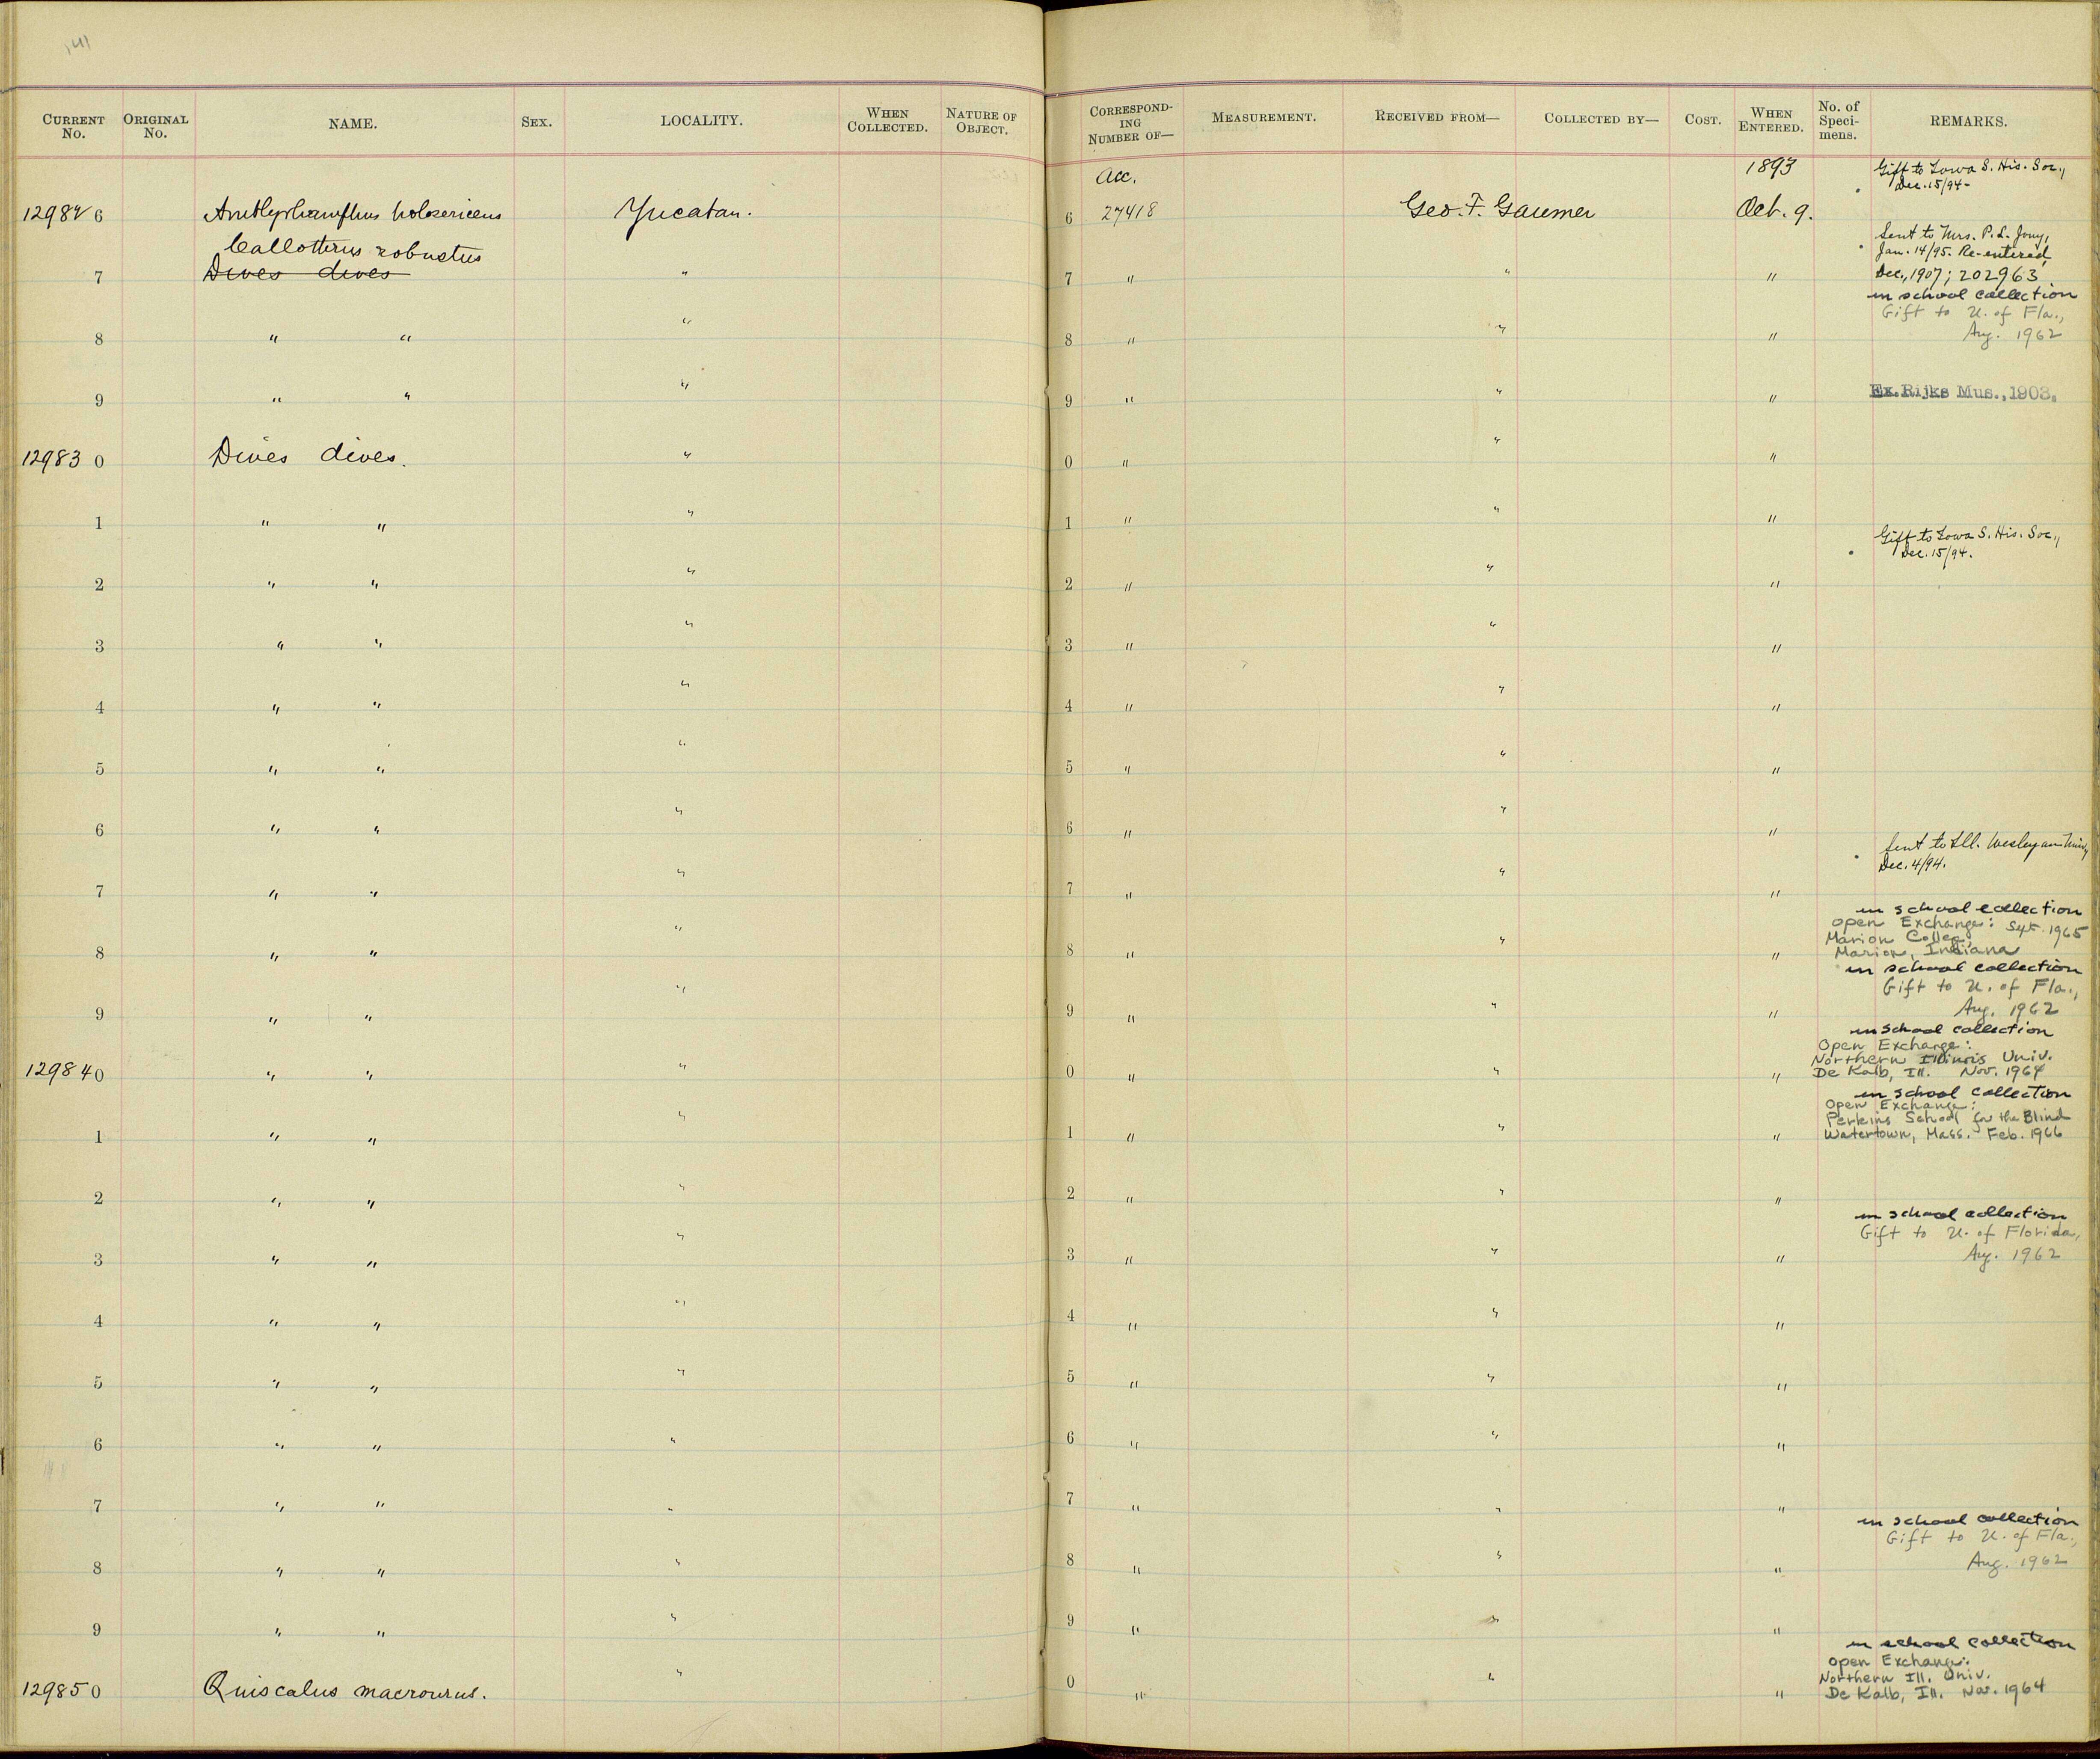 141
CURRENT No. ORIGINAL No. NAME. SEX. LOCALITY. WHEN COLLECTED. NATURE OF OBJECT. CORRESPOND-ING NUMBER OF— MEASUREMENT. RECEIVED FROM— COLLECTED BY— COST. WHEN ENTERED. No. of Speci-mens. REMARKS.
Acc. 1893 Gift to Iowa S. His. Soc.,
Dec. 15/94-
12982 6 holosericeus Yucatan. 6 27418 Geo. F. Gaumer Oct. 9.
Callothrus robustus
Sent to Mrs. P. L. Jouy,
Jan. 14/95. Re-entered
7 Dives dives " 7 " " " Dec., 1907; 202963
in school collection
Gift to U. of Fla.,
8 " " " 8 " " " Aug. 1962
9 " " " 9 " " " Ex. Rijks Mus., 1903.
12983 0 Dives dives. " 0 " " "
1 " " " 1 " " "
Gift to Iowa S. His. Soc.,
Dec. 15/94.
2 " " " 2 " " "
3 " " " 3 " " "
4 " " " 4 " " "
5 " " " 5 " " "
6 " " " 6 " " "
Sent to Ill. Wesleyan Univ
Dec. 4/94.
7 " " " 7 " " "
in school collection
Open Exchange: Sept. 1965
Marion College
8 " " " 8 " " " Marion, Indiana
in school collection
Gift to U. of Fla.,
9 " " " 9 " " " Aug. 1962
in school collection
Open Exchange:
Northern Illinois Univ.
12984 0 " " " 0 " " " De Kalb, Ill. Nov. 1964
in school collection
Open Exchange:
Perkins School for the Blind
1 " " " 1 " " " Watertown, Mass. Feb. 1966
2 " " " 2 " " "
in school collection
Gift to U. of Florida,
3 " " " 3 " " " Aug. 1962
4 " " " 4 " " "
5 " " " 5 " " "
6 " " " 6 " " "
7 " " " 7 " " "
in school collection
Gift to U. of Fla.,
8 " " " 8 " " " Aug. 1962
9 " " " 9 " " "
in school collection
Open Exchange:
Northern Ill. Univ.
12985 0 Quiscalus macrourus. " 0 " " " De Kalb, Ill. Nov. 1964